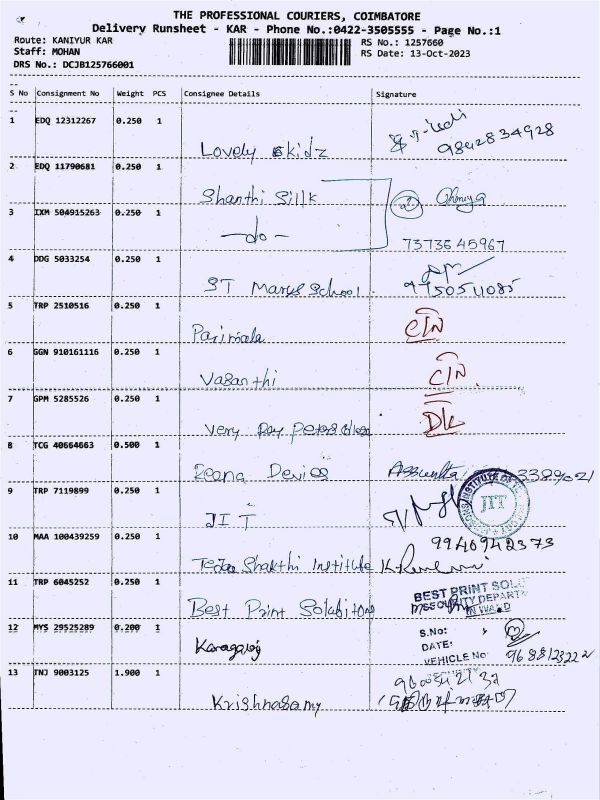 THE PROFESSIONAL COURIERS, COIMBATORE
Delivery Runsheet - KAR - Phone No.:0422-3505555 - Page No.:1
Route: KANIYUR KAR RS No.: 1257660
Staff: MOHAN RS Date: 13-Oct-2023
DRS No.: DCJB125766001
S No Consignment No Weight PCS Consignee Details Signature
1 EDQ 12312267 0.250 1
Lovely kidz 9842834928
2 EDQ 11790681 0.250 1
Shanthi Sillk
3 IXM 504915263 0.250 1
-do- 7373645967
4 DDG 5033254 0.250 1
ST Marys School.
5 TRP 2510516 0.250 1
Parimala CIN
6 GGN 910161116 0.250 1
Vasanthi CIN
7 GPM 5285526 0.250 1
Very DL
8 TCG 40664663 0.500 1
Reena Devies Assuntta
9 TRP 7119899 0.250 1
JIT JIT
10 MAA 100439259 0.250 1
9940942373
Shakthi Institute
11 TRP 6045252 0.250 1
Best Print Solutions BEST PRINT
SECURITY DEPART
INWARD
12 MYS 29525289 0.200 1
S.No:
DATE:
VEHICLE No: 9688123222
13 TNJ 9003125 1.900 1
Krishnasamy